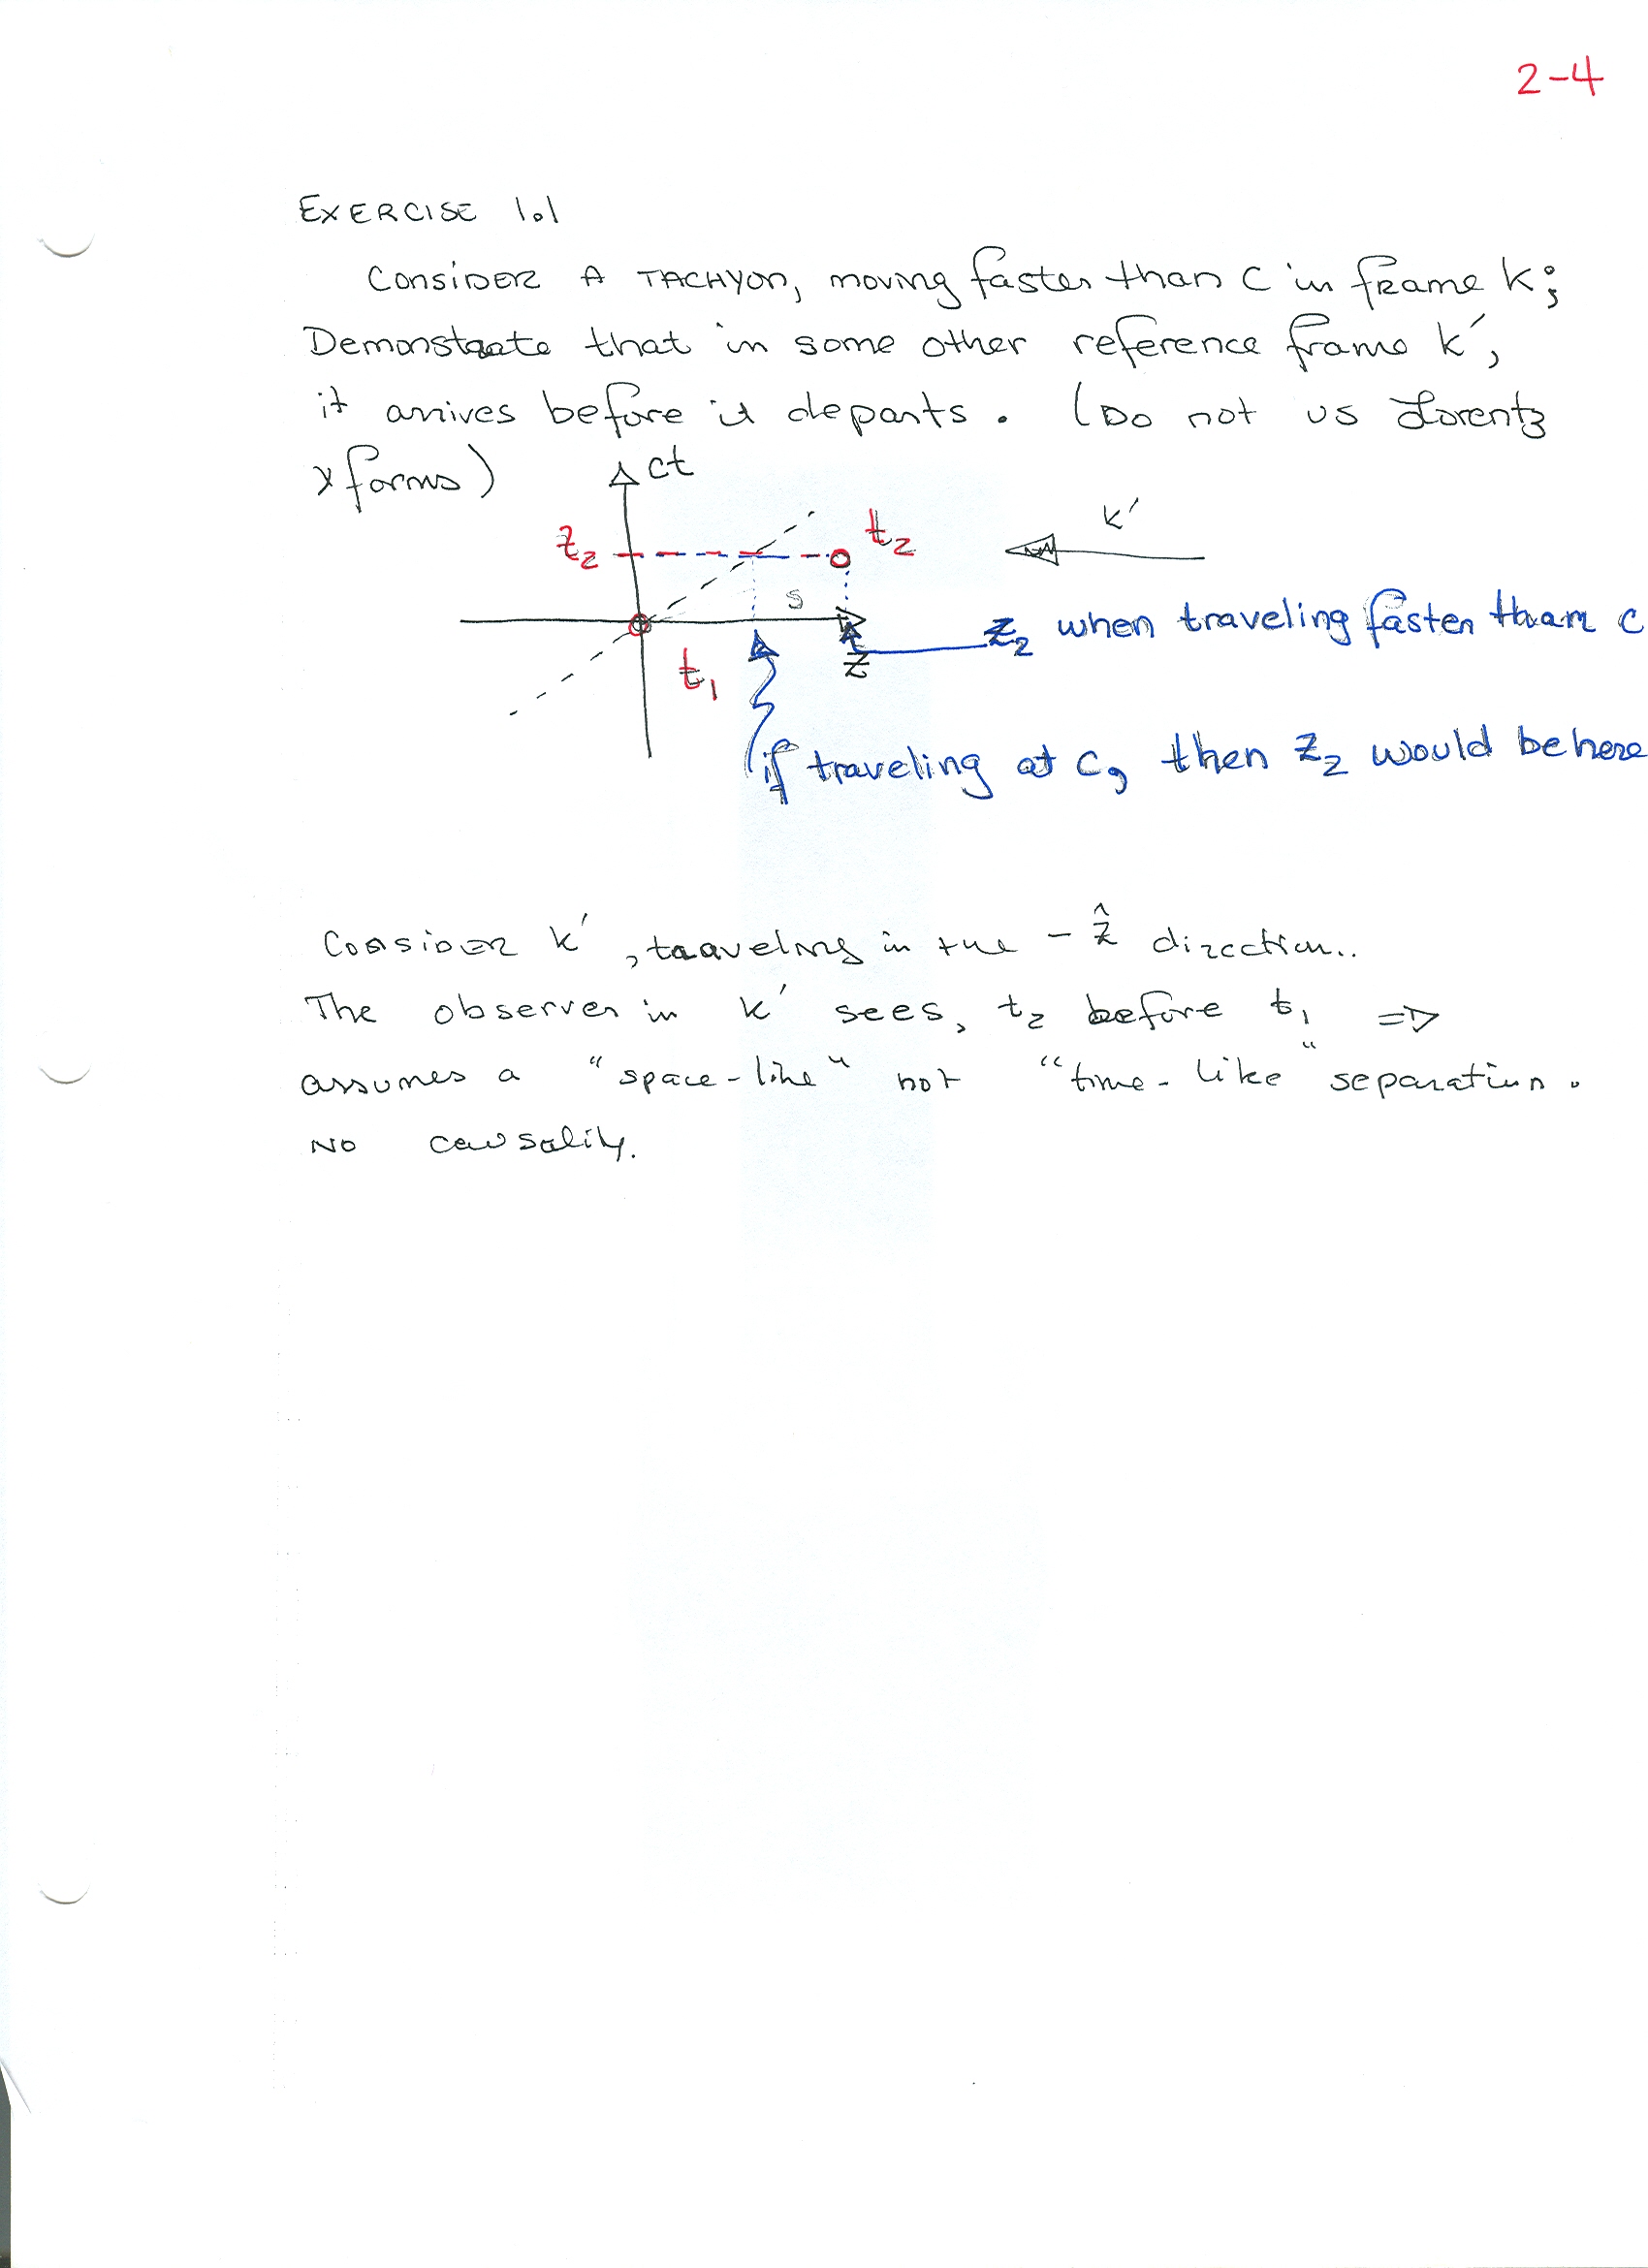 2-4
EXERCISE 1.1
CONSIDER A TACHYON, moving faster than c in frame K;
Demonstrate that in some other reference frame K',
it arrives before it departs. (Do not us Lorentz
xforms)
ct
K'
z2
t2
s
z2 when traveling faster than c
t1
z
if traveling at c, then z2 would be here
CONSIDER K', traveling in the - ẑ direction..
The observer in K' sees, t2 before t1 =>
assumes a "space-like" not "time-like" separation.
NO causality.